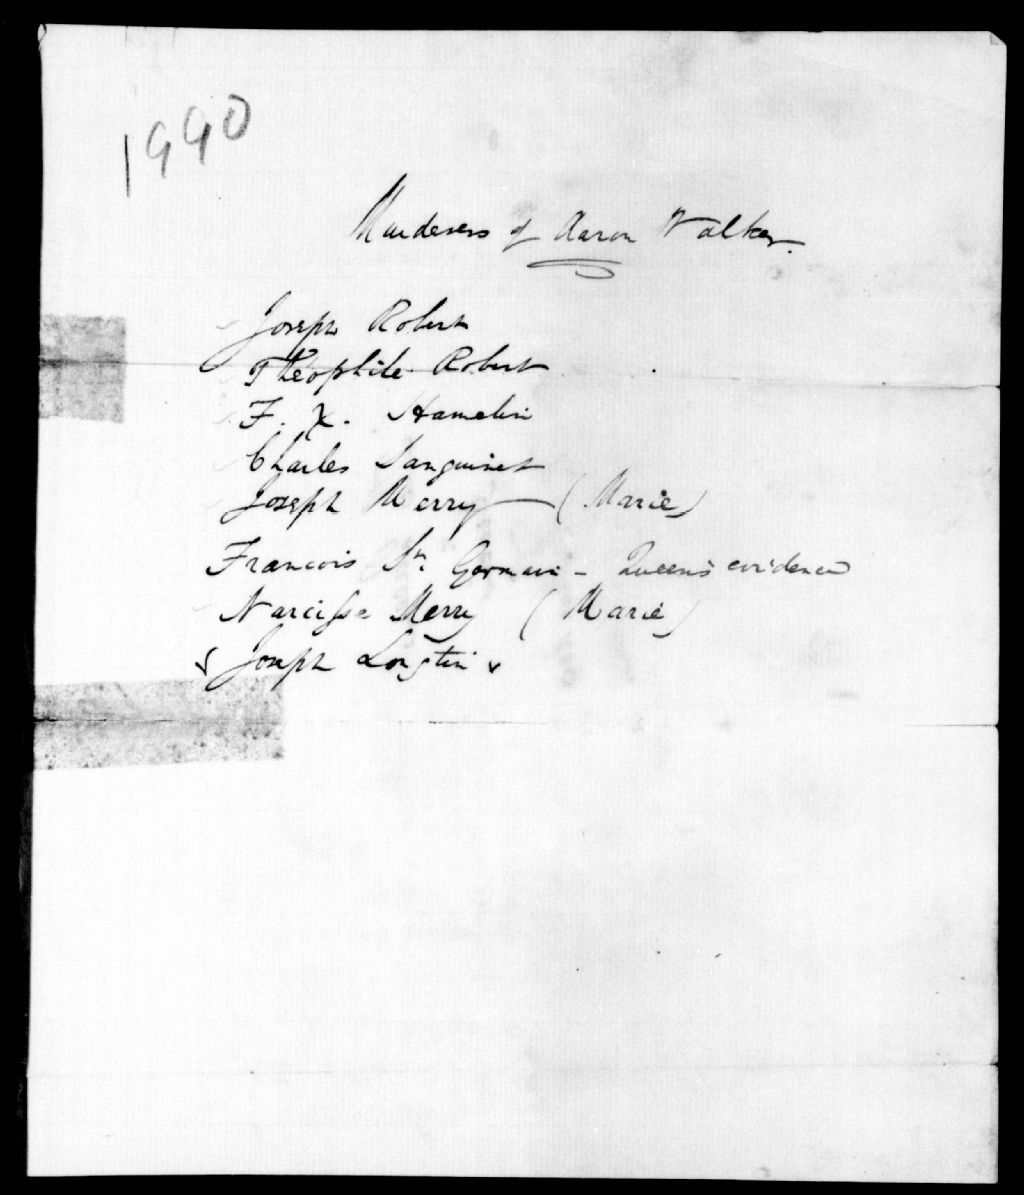 1990
Murderers of Aaron Walker.
Joseph Robert
Théophile Robert
F. X. Hamelin
Charles Sanguinet
Joseph Merry (Marié)
Francois St. Germain - Queen's evidence
Narcisse Merry (Marié)
Joseph Longtin